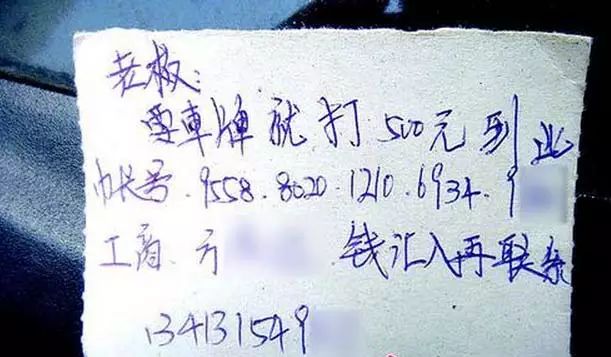 老板:
要車牌就打500元到此
帐号.9558.8020.1210.6934.9
工商 方 钱汇入再联系
134131549